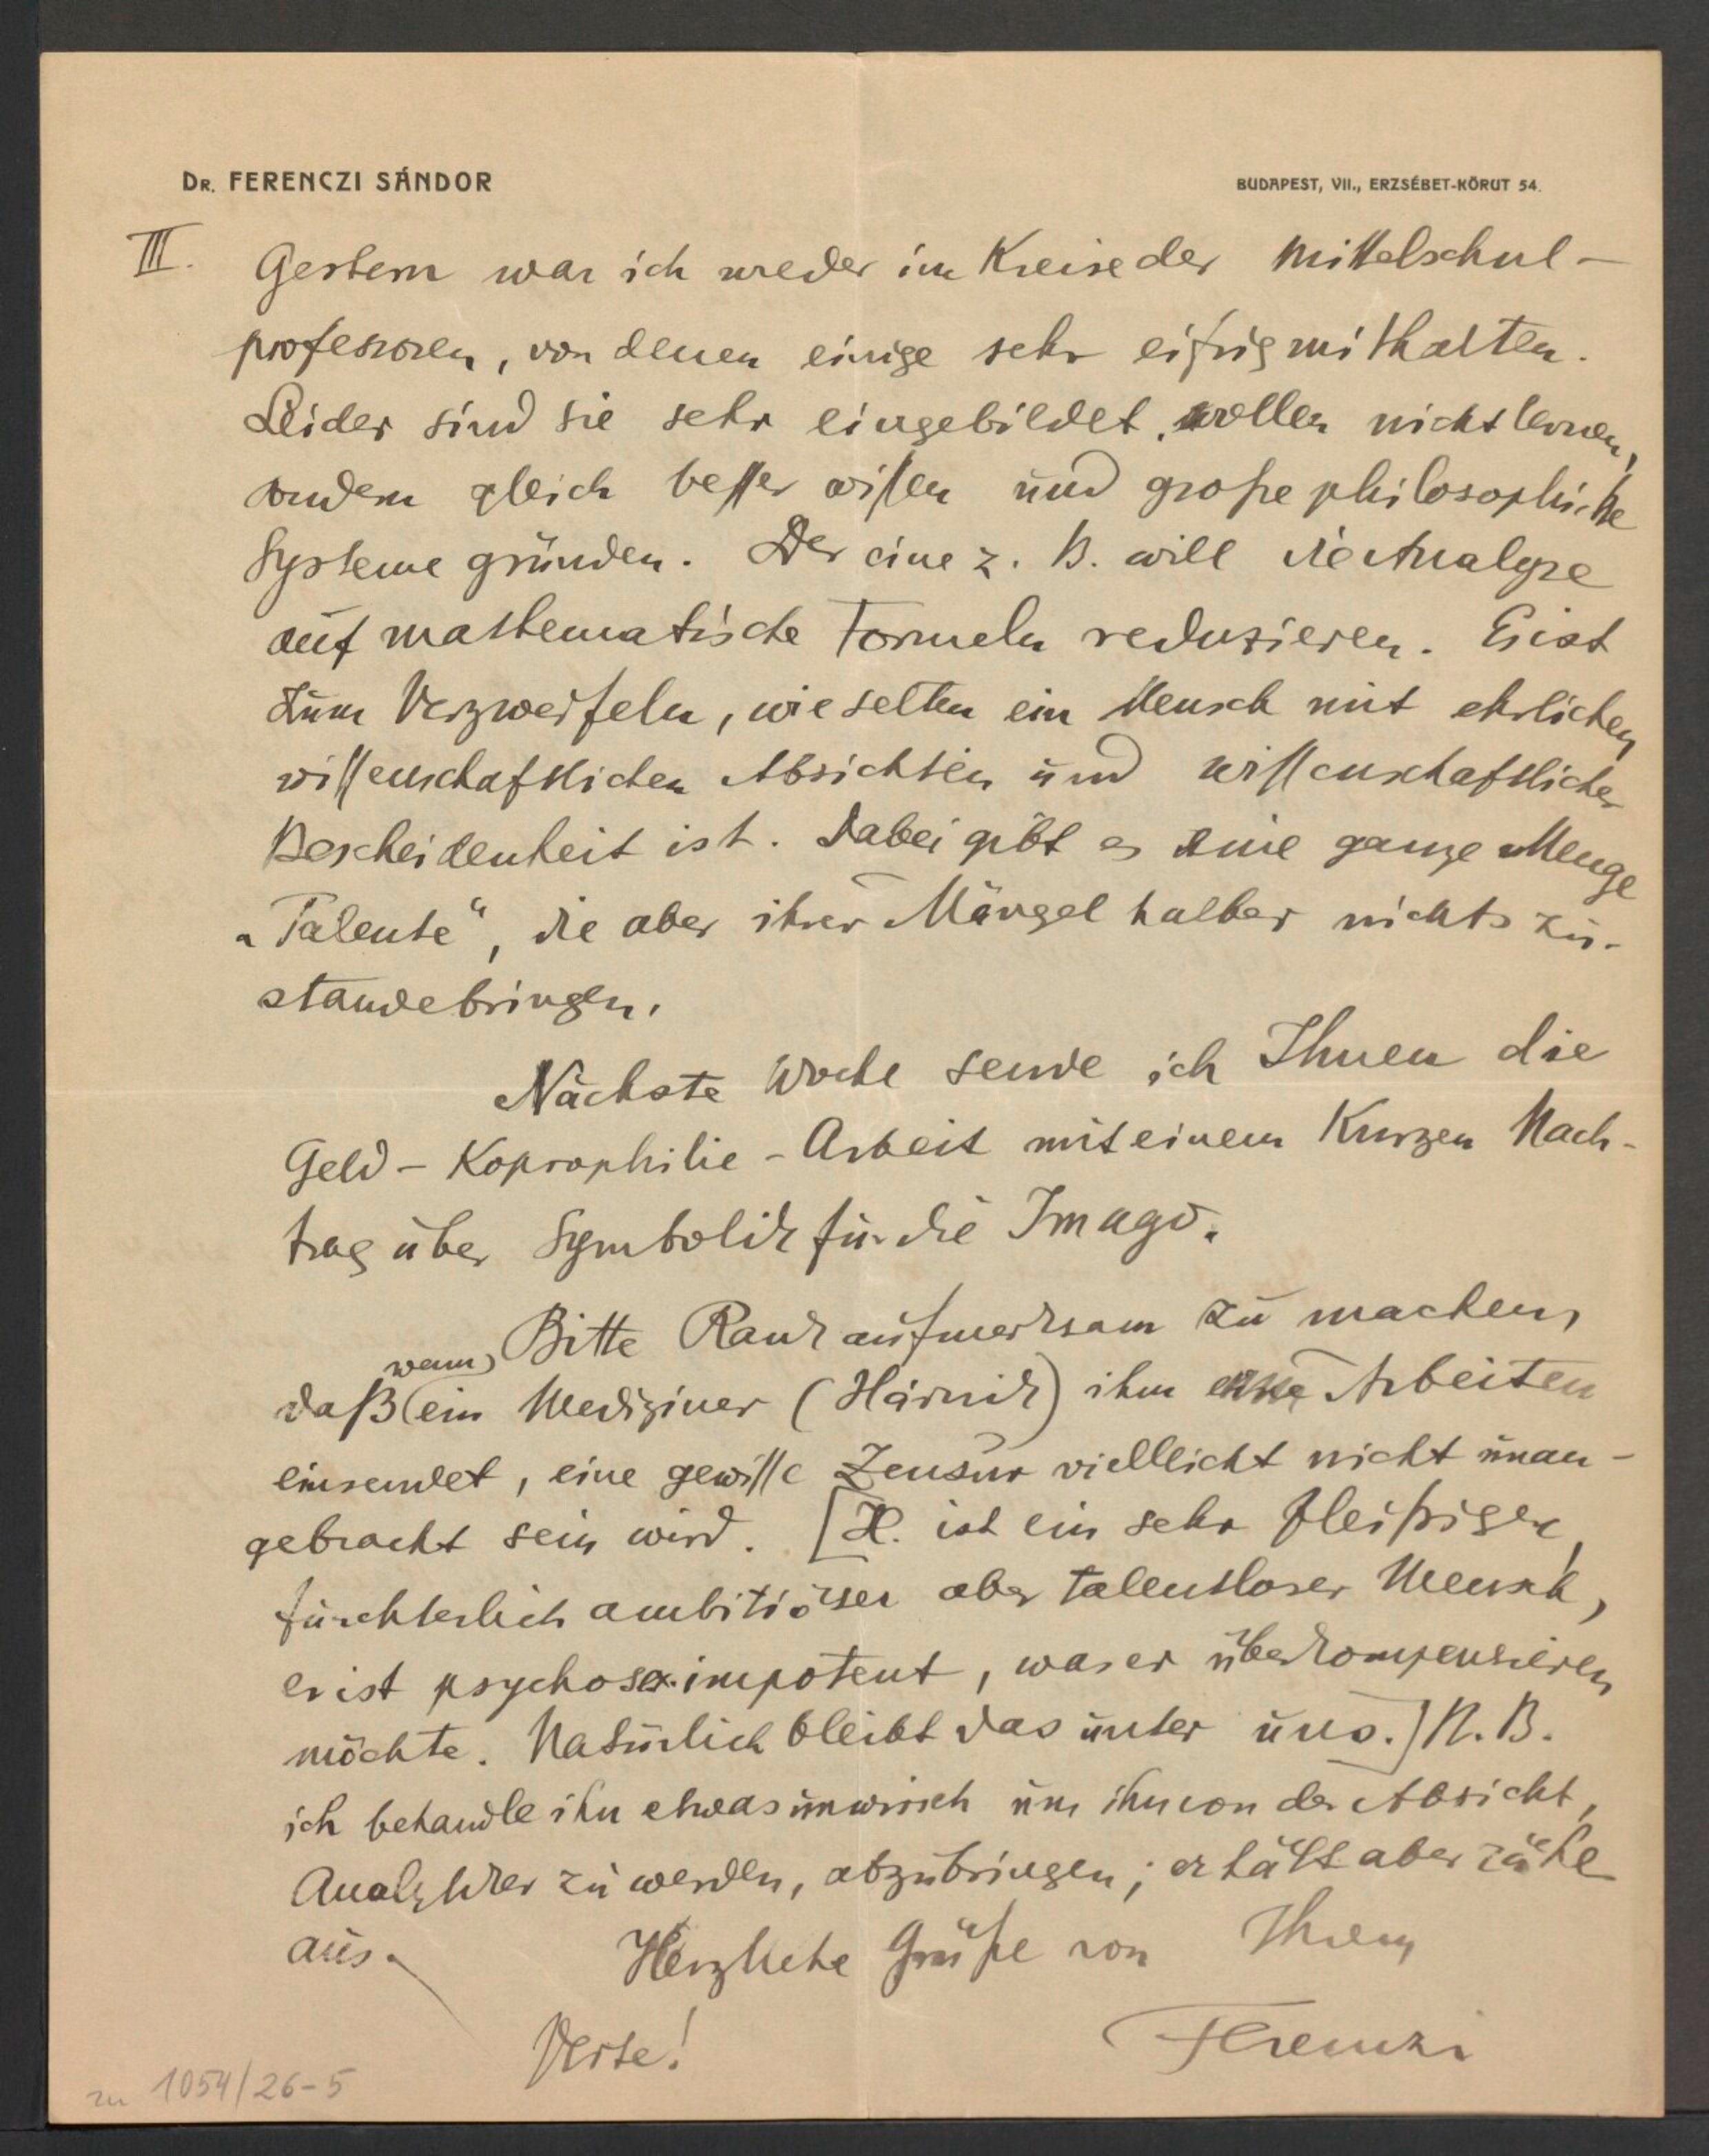 Dr. FERENCZI SÁNDOR
BUDAPEST, VII., ERZSÉBET-KÖRUT 54.
III. Gestern war ich wieder im Kreise der Mittelschul-
professoren, von denen einige sehr eifrig mithalten.
Leider sind sie sehr eingebildet, wollen nichts lernen,
sondern gleich besser wissen und große philosophische
Systeme gründen. Der eine z. B. will die Analyse
auf mathematische Formeln reduzieren. Es ist
zum Verzweifeln, wie selten ein Mensch mit ehrlichen
wissenschaftlichen Absichten und wissenschaftlicher
Bescheidenheit ist. Dabei gibt es eine ganze Menge
„Talente“, die aber ihrer Mängel halber nichts zu-
standebringen.
Nächste Woche sende ich Ihnen die
Geld-Koprophilie-Arbeit mit einem kurzen Nach-
trag über Symbolik für die Imago.
Bitte Rank aufmerksam zu machen,
wenn
daß ein Mediziner (Hárnik) ihm Arbeiten
einsendet, eine gewisse Zensur vielleicht nicht unan-
gebracht sein wird. [H. ist ein sehr fleißiger,
fürchterlich ambitiöser aber talentloser Mensch,
er ist psychosex. impotent, was er überkompensieren
möchte. Natürlich bleibt das unter uns.] N. B.
ich behandle ihn etwas unwirsch um ihn von der Absicht,
Analytiker zu werden, abzubringen; er hält aber zähe
aus.
Herzliche Grüße von Ihrem
Ferenczi
Verte!
zu 1054/26-5